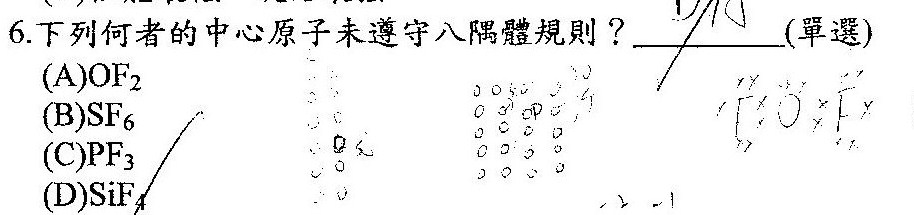 6.下列何者的中心原子未遵守八隅體規則？________(單選)
(A)OF₂
(B)SF₆
(C)PF₃
(D)SiF₄